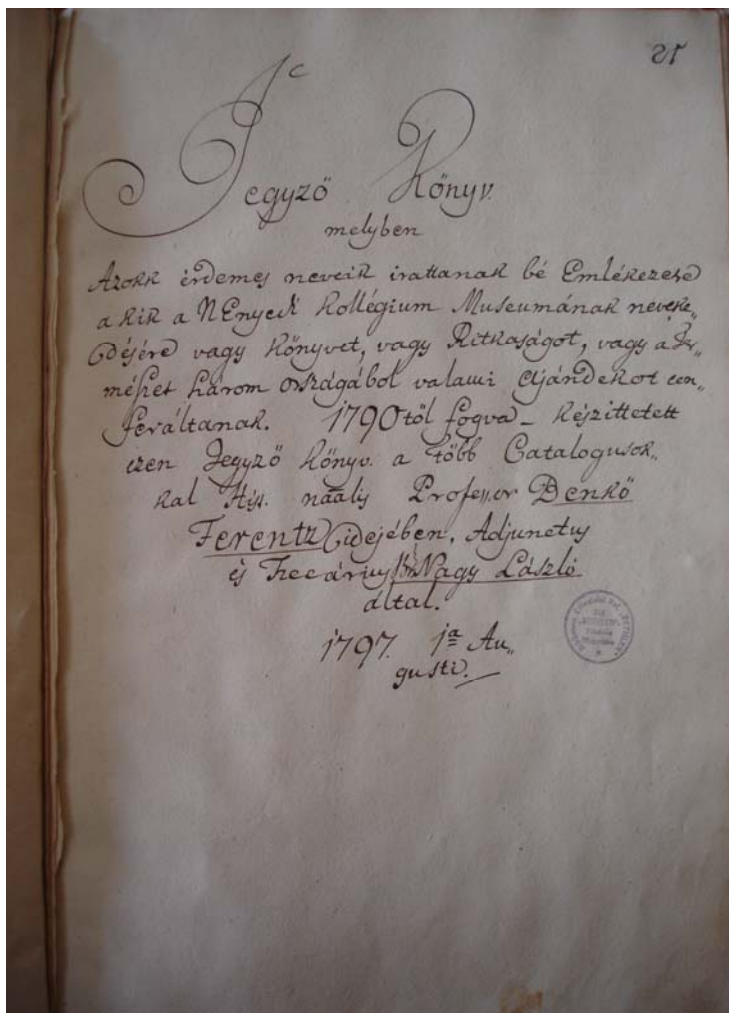 Jegyző Könyv.
melyben
Azokk érdemes neveik irattanak bé Emlékezese
a kik a NEnyedi Kollégium Museumának neveke„
déjére vagy Könyvet, vagy Ritkaságot, vagy a Ter„
méſzet három országából valami Ajándekot con„
feráltanak. 1790től fogva – készittetett
ezen Jegyző Könyv. a több Catalogusok„
kal Hiſt. nãalis Profeſsor Benkő
Ferentz idejében, Adjunctus
és Thecárius Nagy László
által.
1797. 1ª Au„
gusti.